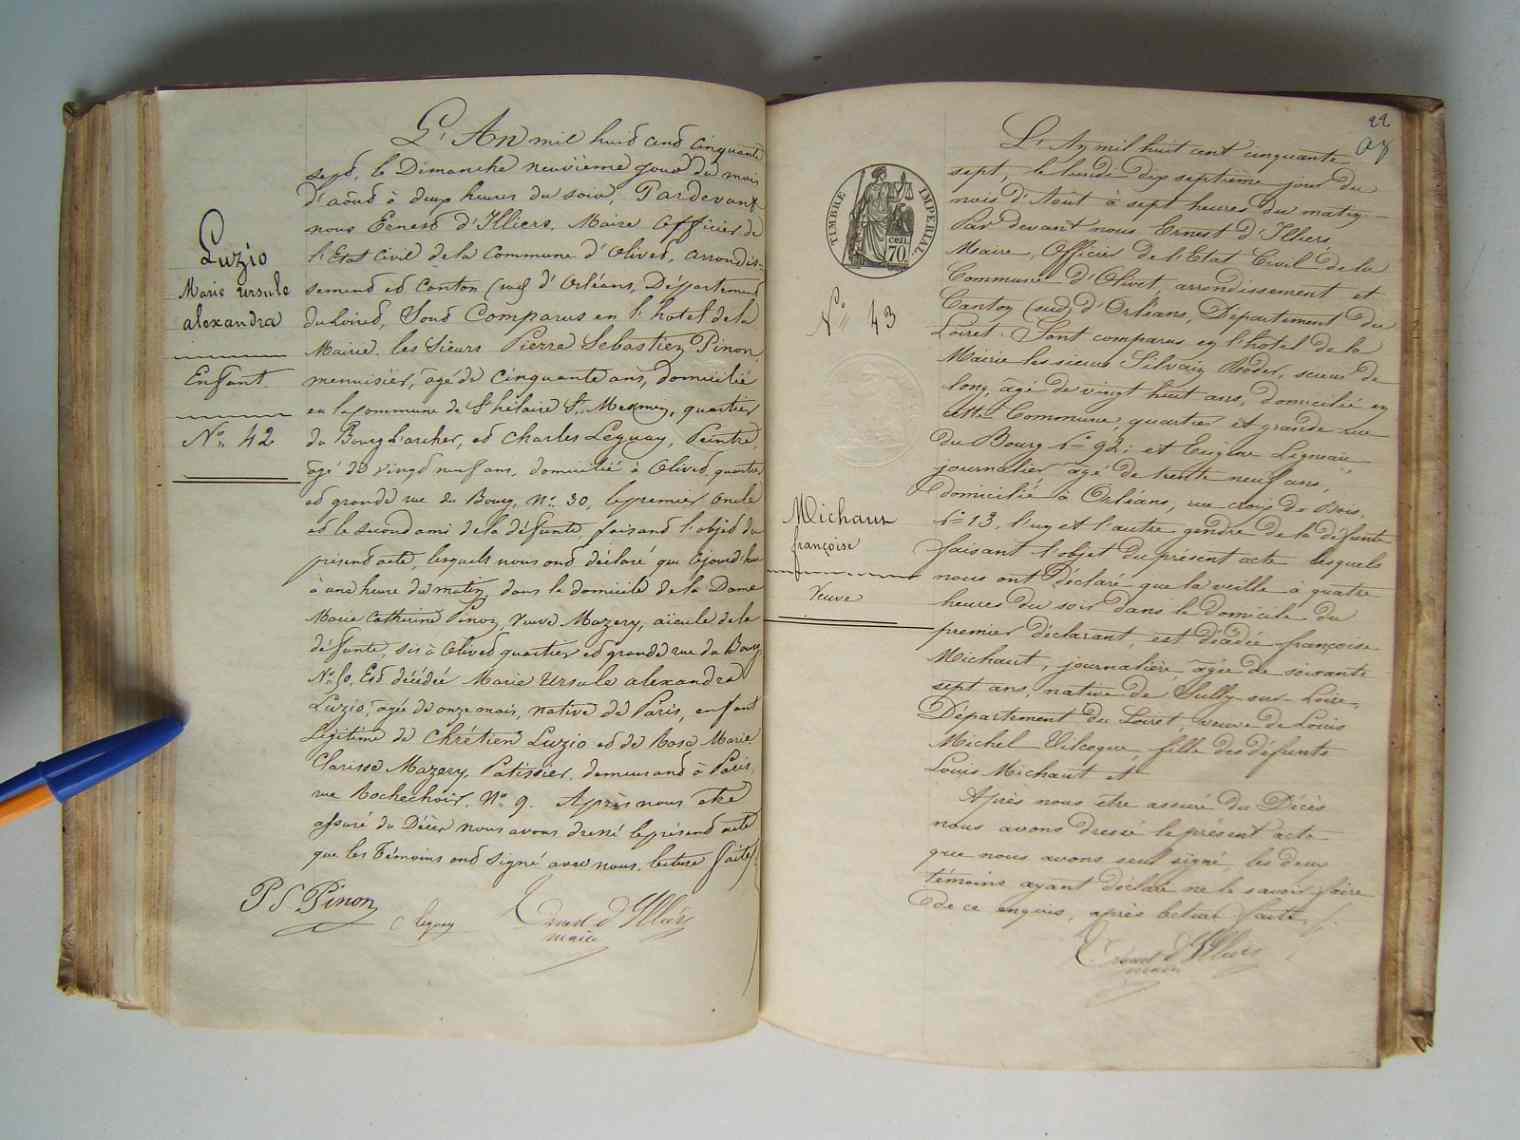 L'An mil huit cent cinquante
sept, le Dimanche neuvième jour du mois
d'août à deux heures du soir, Pardevant
nous Ernest d'Illiers, Maire officier de
l'Etat Civil de la Commune d'Olivet, arrondis-
sement et Canton (sud) d'Orléans, Département
du Loiret, Sont Comparus en l'hotel de la
Mairie les Sieurs Pierre Sebastien Pinon,
menuisier, âgé de Cinquante ans, domicilié
en la commune de St hilaire St Mesmin, quartier
du Bourg l'archer, et Charles Leguay, Peintre
âgé de vingt neuf ans, domicilié à Olivet, quartier
et grande rue du Bourg, No. 30, le premier oncle
et le second ami de la défunte, faisant l'objet du
présent acte, lesquels nous ont déclaré que Cejourd'hui
à une heure du matin, dans le domicile de la Dame
Marie Catherine Pinon, Veuve Mazery, aïeule de la
défunte, sis à Olivet quartier et grande rue du Bourg
No. Est décédée Marie Ursule alexandra
Luzio, âgée de onze mois, native de Paris, enfant
Légitime de Chrétien Luzio et de Rosa Marie
Clarissa Mazery, Patissier, demeurant à Paris,
rue Rochechoir, No. 9. Après nous etre
assuré du Décès nous avons dressé le présent acte
que les Témoins ont signé avec nous, lecture faite
Luzio
Marie Ursule
alexandra
Enfant
No. 42
P S Pinon
C Leguay
Ernest d'Illiers
maire
22
L'An mil huit cent cinquante
sept, le lundi dix septième jour du
mois d'Août à sept heures du matin
Par devant nous Ernest d'Illiers,
Maire, Officier de l'Etat Civil de la
Commune d'Olivet, arrondissement et
Canton (sud) d'Orléans, Département du
Loiret. Sont comparus en l'hotel de la
Mairie les sieurs Silvain Roder, scieur de
long, âgé de vingt huit ans, domicilié en
cette Commune, quartier et grande rue
du Bourg No 92; et Eugène Ligneau
journalier âgé de trente neuf ans,
domicilié à Orléans, rue croix de Bois,
No 13, l'un et l'autre gendre de la défunte
faisant l'objet du présent acte lesquels
nous ont Déclaré que la veille à quatre
heures du soir dans le domicile du
premier déclarant, est décédée françoise
Michaut, journalière, âgée de soixante
sept ans, native de Sully-sur-Loire,
Département du Loiret veuve de Louis
Michel Vilcoque, fille des défunts
Louis Michaut et
Après nous être assuré du Décès
nous avons dressé le présent acte
que nous avons seul signé, les deux
témoins ayant déclaré ne le savoir faire
de ce enquis, après lecture faite
TIMBRE IMPERIAL
CEN. 70
No. 43
Michaut
françoise
Veuve
Ernest d'Illiers
maire